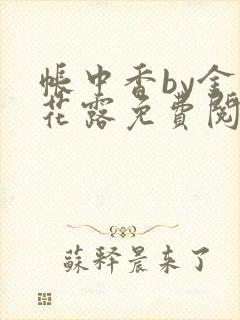 帳中香by金
花露免費閱
蘇釋晨來了